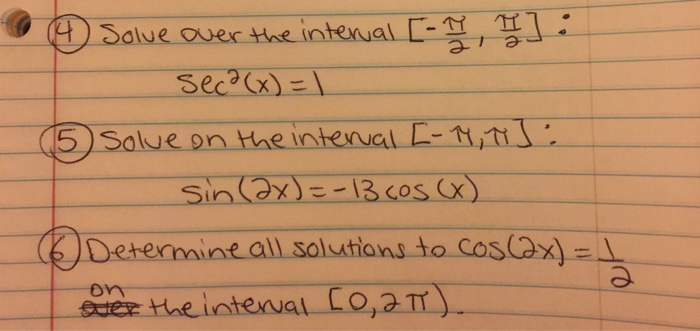 ④ Solve over the interval [-π/2, π/2]:
sec²(x) = 1
⑤ Solve on the interval [-π, π]:
sin(2x) = -13 cos(x)
⑥ Determine all solutions to cos(2x) = 1/2
on ~~over~~ the interval [0, 2π).